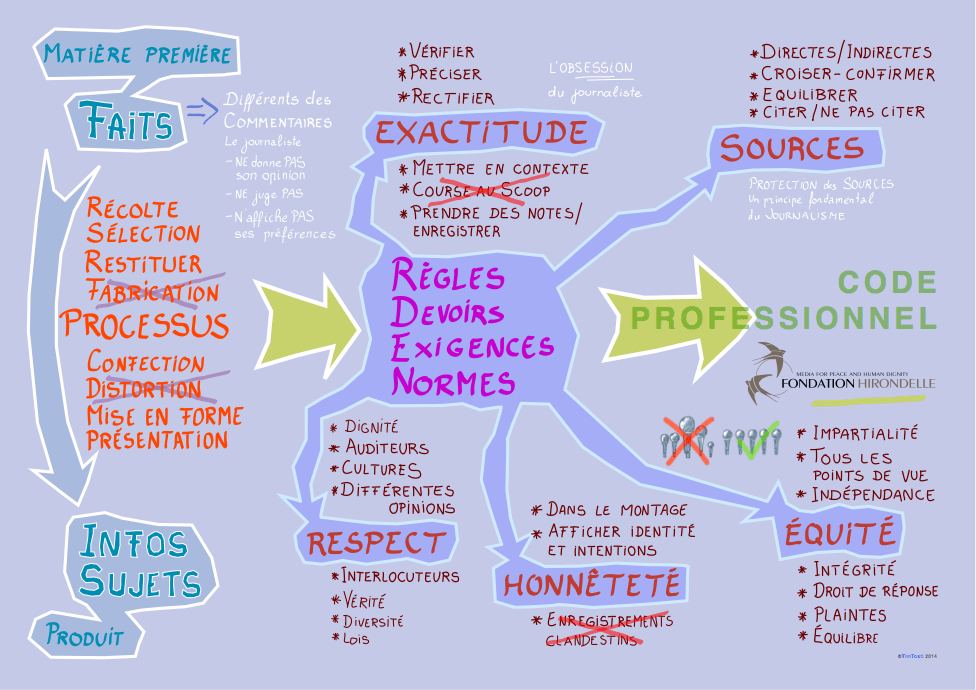 MATIÈRE PREMIÈRE
FAITS
Différents des
COMMENTAIRES
Le journaliste
- NE donne PAS
son opinion
- NE juge PAS
- N'affiche PAS
ses préférences
RÉCOLTE
SÉLECTION
RESTITUER
FABRICATION
PROCESSUS
CONFECTION
DISTORTION
MISE EN FORME
PRÉSENTATION
INFOS
SUJETS
PRODUIT
* VÉRIFIER
* PRÉCISER
* RECTIFIER
L'OBSESSION
du journaliste
EXACTITUDE
* METTRE EN CONTEXTE
* COURSE AU SCOOP
* PRENDRE DES NOTES/
ENREGISTRER
* DIRECTES/INDIRECTES
* CROISER-CONFIRMER
* EQUILIBRER
* CITER/NE PAS CITER
SOURCES
PROTECTION des SOURCES
Un principe fondamental
du JOURNALISME
RÈGLES
DEVOIRS
EXIGENCES
NORMES
CODE
PROFESSIONNEL
MEDIA FOR PEACE AND HUMAN DIGNITY
FONDATION HIRONDELLE
* DIGNITÉ
* AUDITEURS
* CULTURES
* DIFFÉRENTES
OPINIONS
RESPECT
* INTERLOCUTEURS
* VÉRITÉ
* DIVERSITÉ
* LOIS
* DANS LE MONTAGE
* AFFICHER IDENTITÉ
ET INTENTIONS
HONNÊTETÉ
* ENREGISTREMENTS
CLANDESTINS
* IMPARTIALITÉ
* TOUS LES
POINTS DE VUE
* INDÉPENDANCE
ÉQUITÉ
* INTÉGRITÉ
* DROIT DE RÉPONSE
* PLAINTES
* ÉQUILIBRE